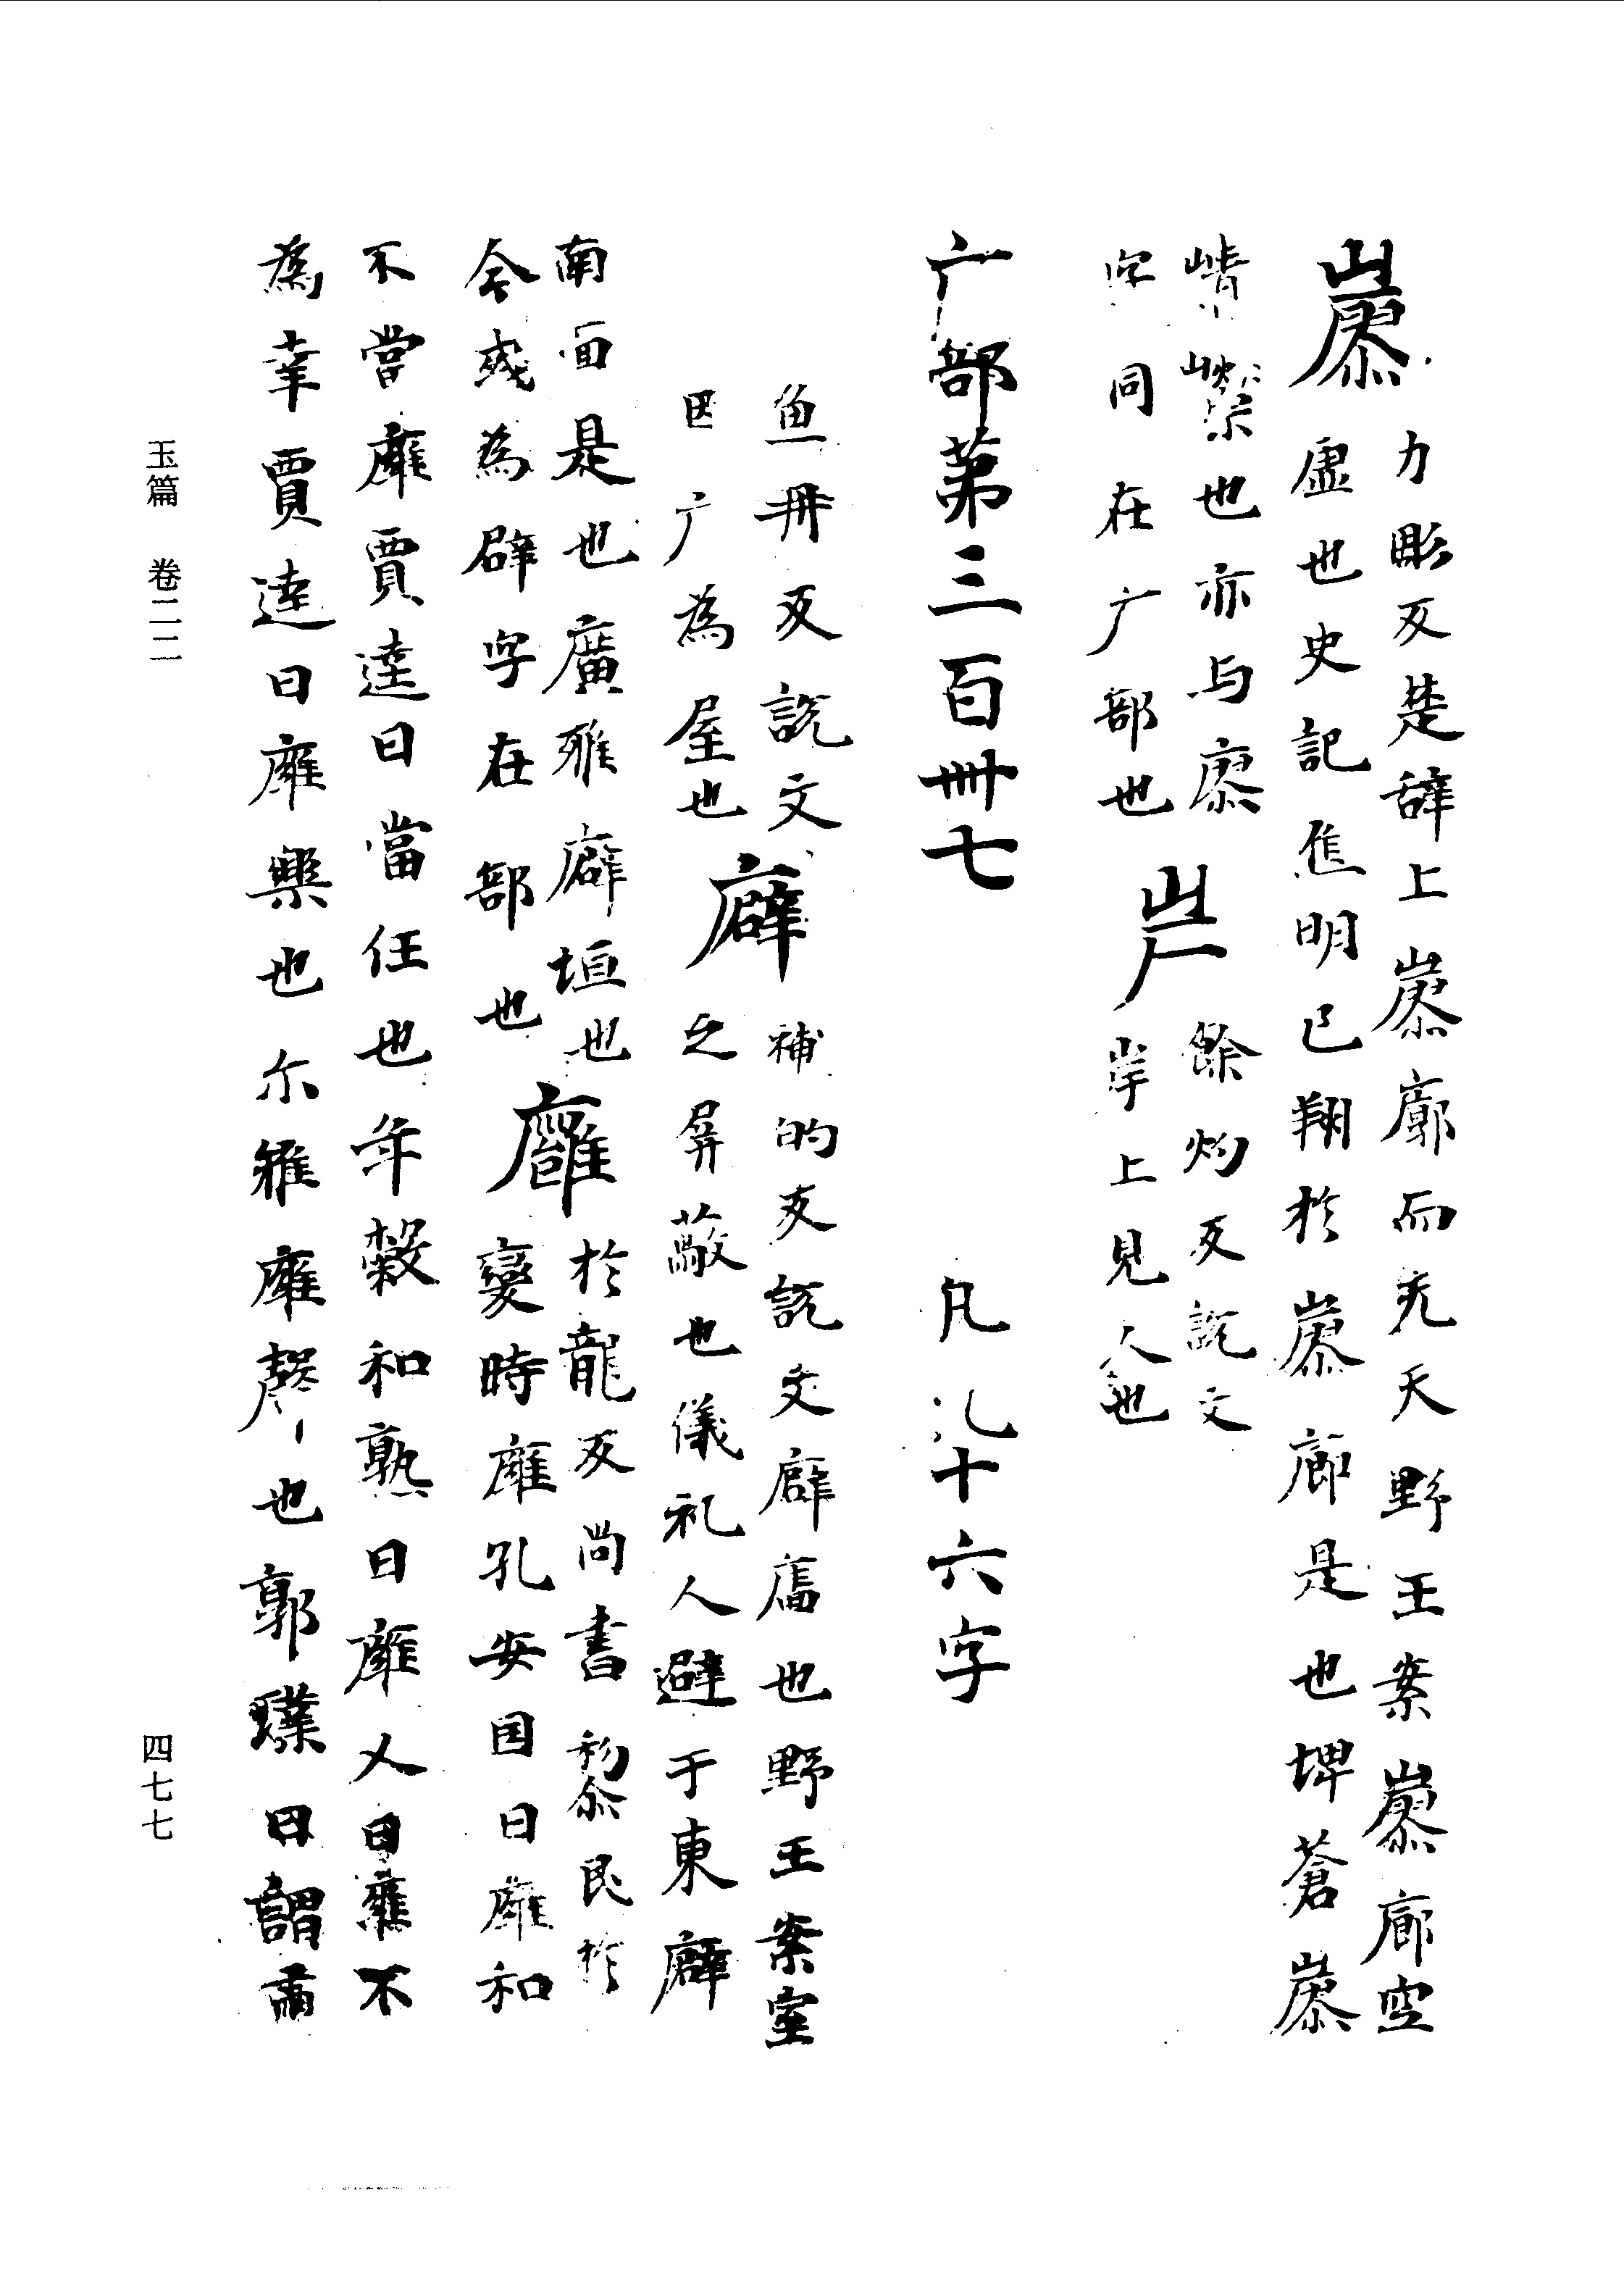 㟍力彫反楚辞上㟍廓而无天野王案㟍廊空
虛也史記焦明已翔於㟍廊是也埤蒼㟍
崝嶸也亦与廖
字同在广部也
屵餘灼反說文
岸上見人也
广部第三百卌七　凡九十六字
魚冊反說文
因广为屋也
廦補的反說文廦廧也野王案室
之屏蔽也儀礼人避于東廦
南面是也廣雅廦垣也
今或為辟字在部也
廱於龍反尚書黎民於
變時廱孔安国曰廱和
不當廱賈逵曰當任也年穀和熟曰廱又曰廱不
為幸賈逵曰廱樂也尓雅廱聲也郭璞曰謂肅
玉篇　卷二二
四七七